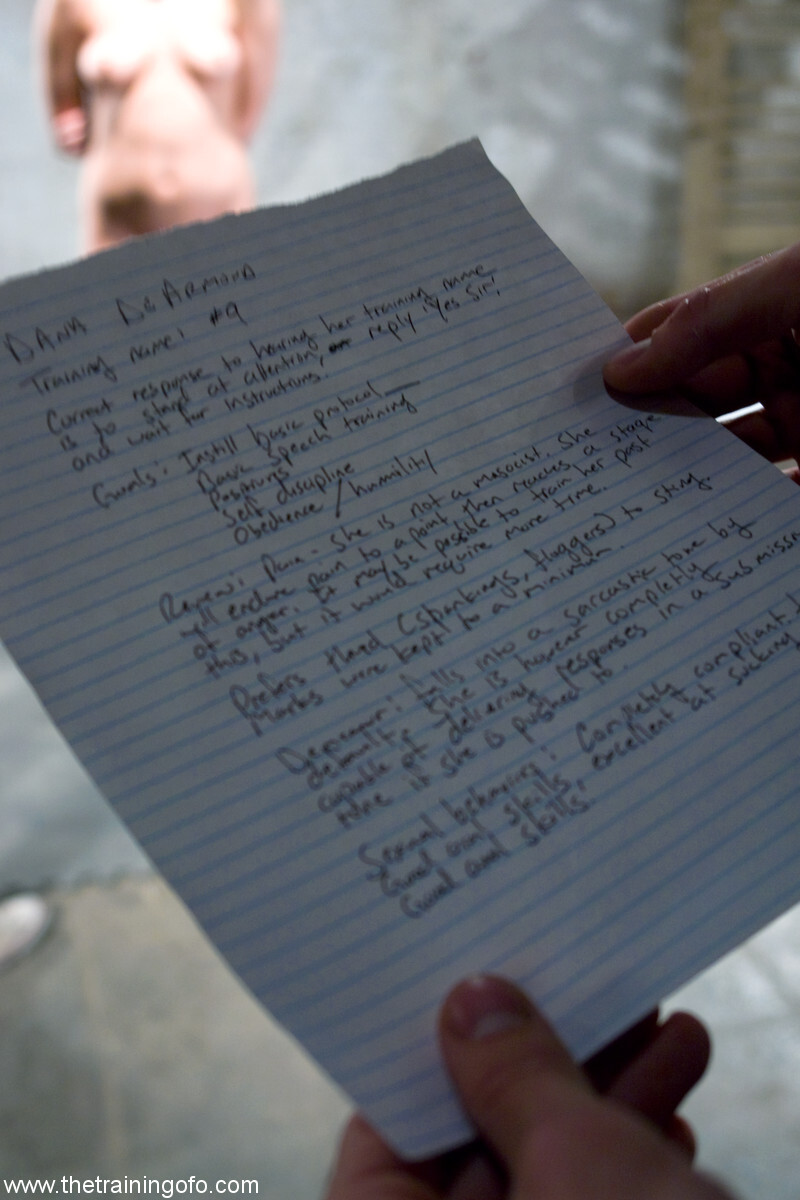 DANA DeARMOND
Training name: #9
Correct response to hearing her training name
is to stand at attention, reply "Yes Sir",
and wait for instructions.
Goals: Instill basic protocol
Basic speech training
Posturing
Self discipline
Obedience / humility
Review: Pain - She is not a masochist. She
will endure pain to a point then reaches a stage
of anger. It may be possible to train her past
this, but it would require more time.
Prefers thud (spankings, floggers) to sting.
Marks were kept to a minimum.
Demeanor: falls into a sarcastic tone by
default. She is however completely
capable of delivering responses in a submissive
tone if she is pushed to.
Sexual behavior: Completely compliant.
Good oral skills, excellent at sucking
Good anal skills.
www.thetrainingofo.com